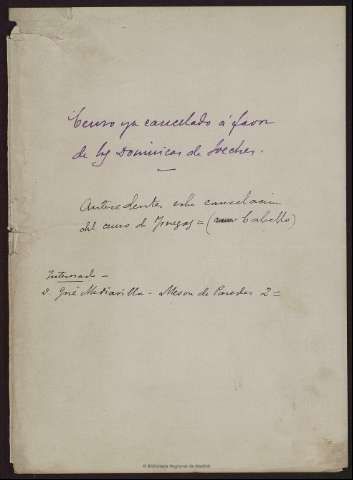 Censo ya cancelado á favor
de las Dominicas de Loeches.
Antecedentes sobre cancelacion
del censo de = ( Cabello)
Interesado -
D. José Mediavilla - Meson de Paredes 2 =
© Biblioteca Regional de Madrid